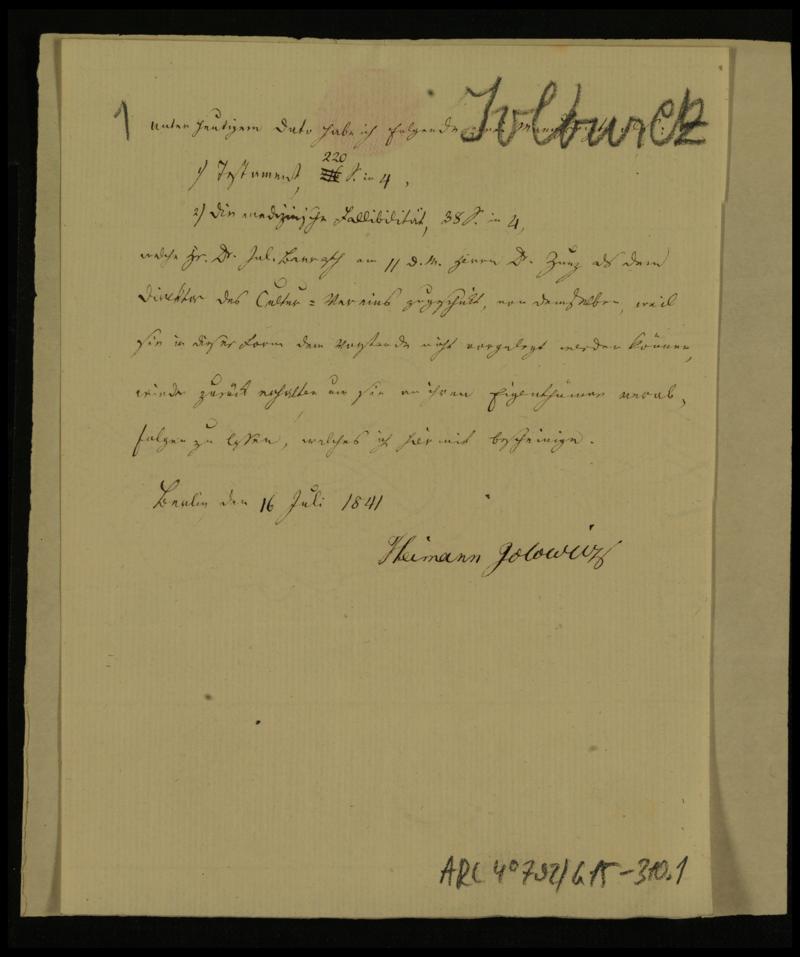 1
Jolowicz
unter heutigem Dato habe ich folgende
1) Testament, 220 S. in 4,
2) Die medizinische Fallibilität, 38 S. in 4,
welche Hr. Dr. Jul. am 11 d. M. Herrn Dr. Zunz als dem
Direktor des Cultur=Vereins zugeschickt, von demselben, weil
sie in dieser Form dem Vorstande nicht vorgelegt werden können,
wieder zurück erhalten um sie an ihren Eigenthümer verab-
folgen zu lassen, welches ich hiermit bescheinige.
Berlin den 16 Juli 1841
Heimann Jolowicz
ARC 4° 792/G15-310.1